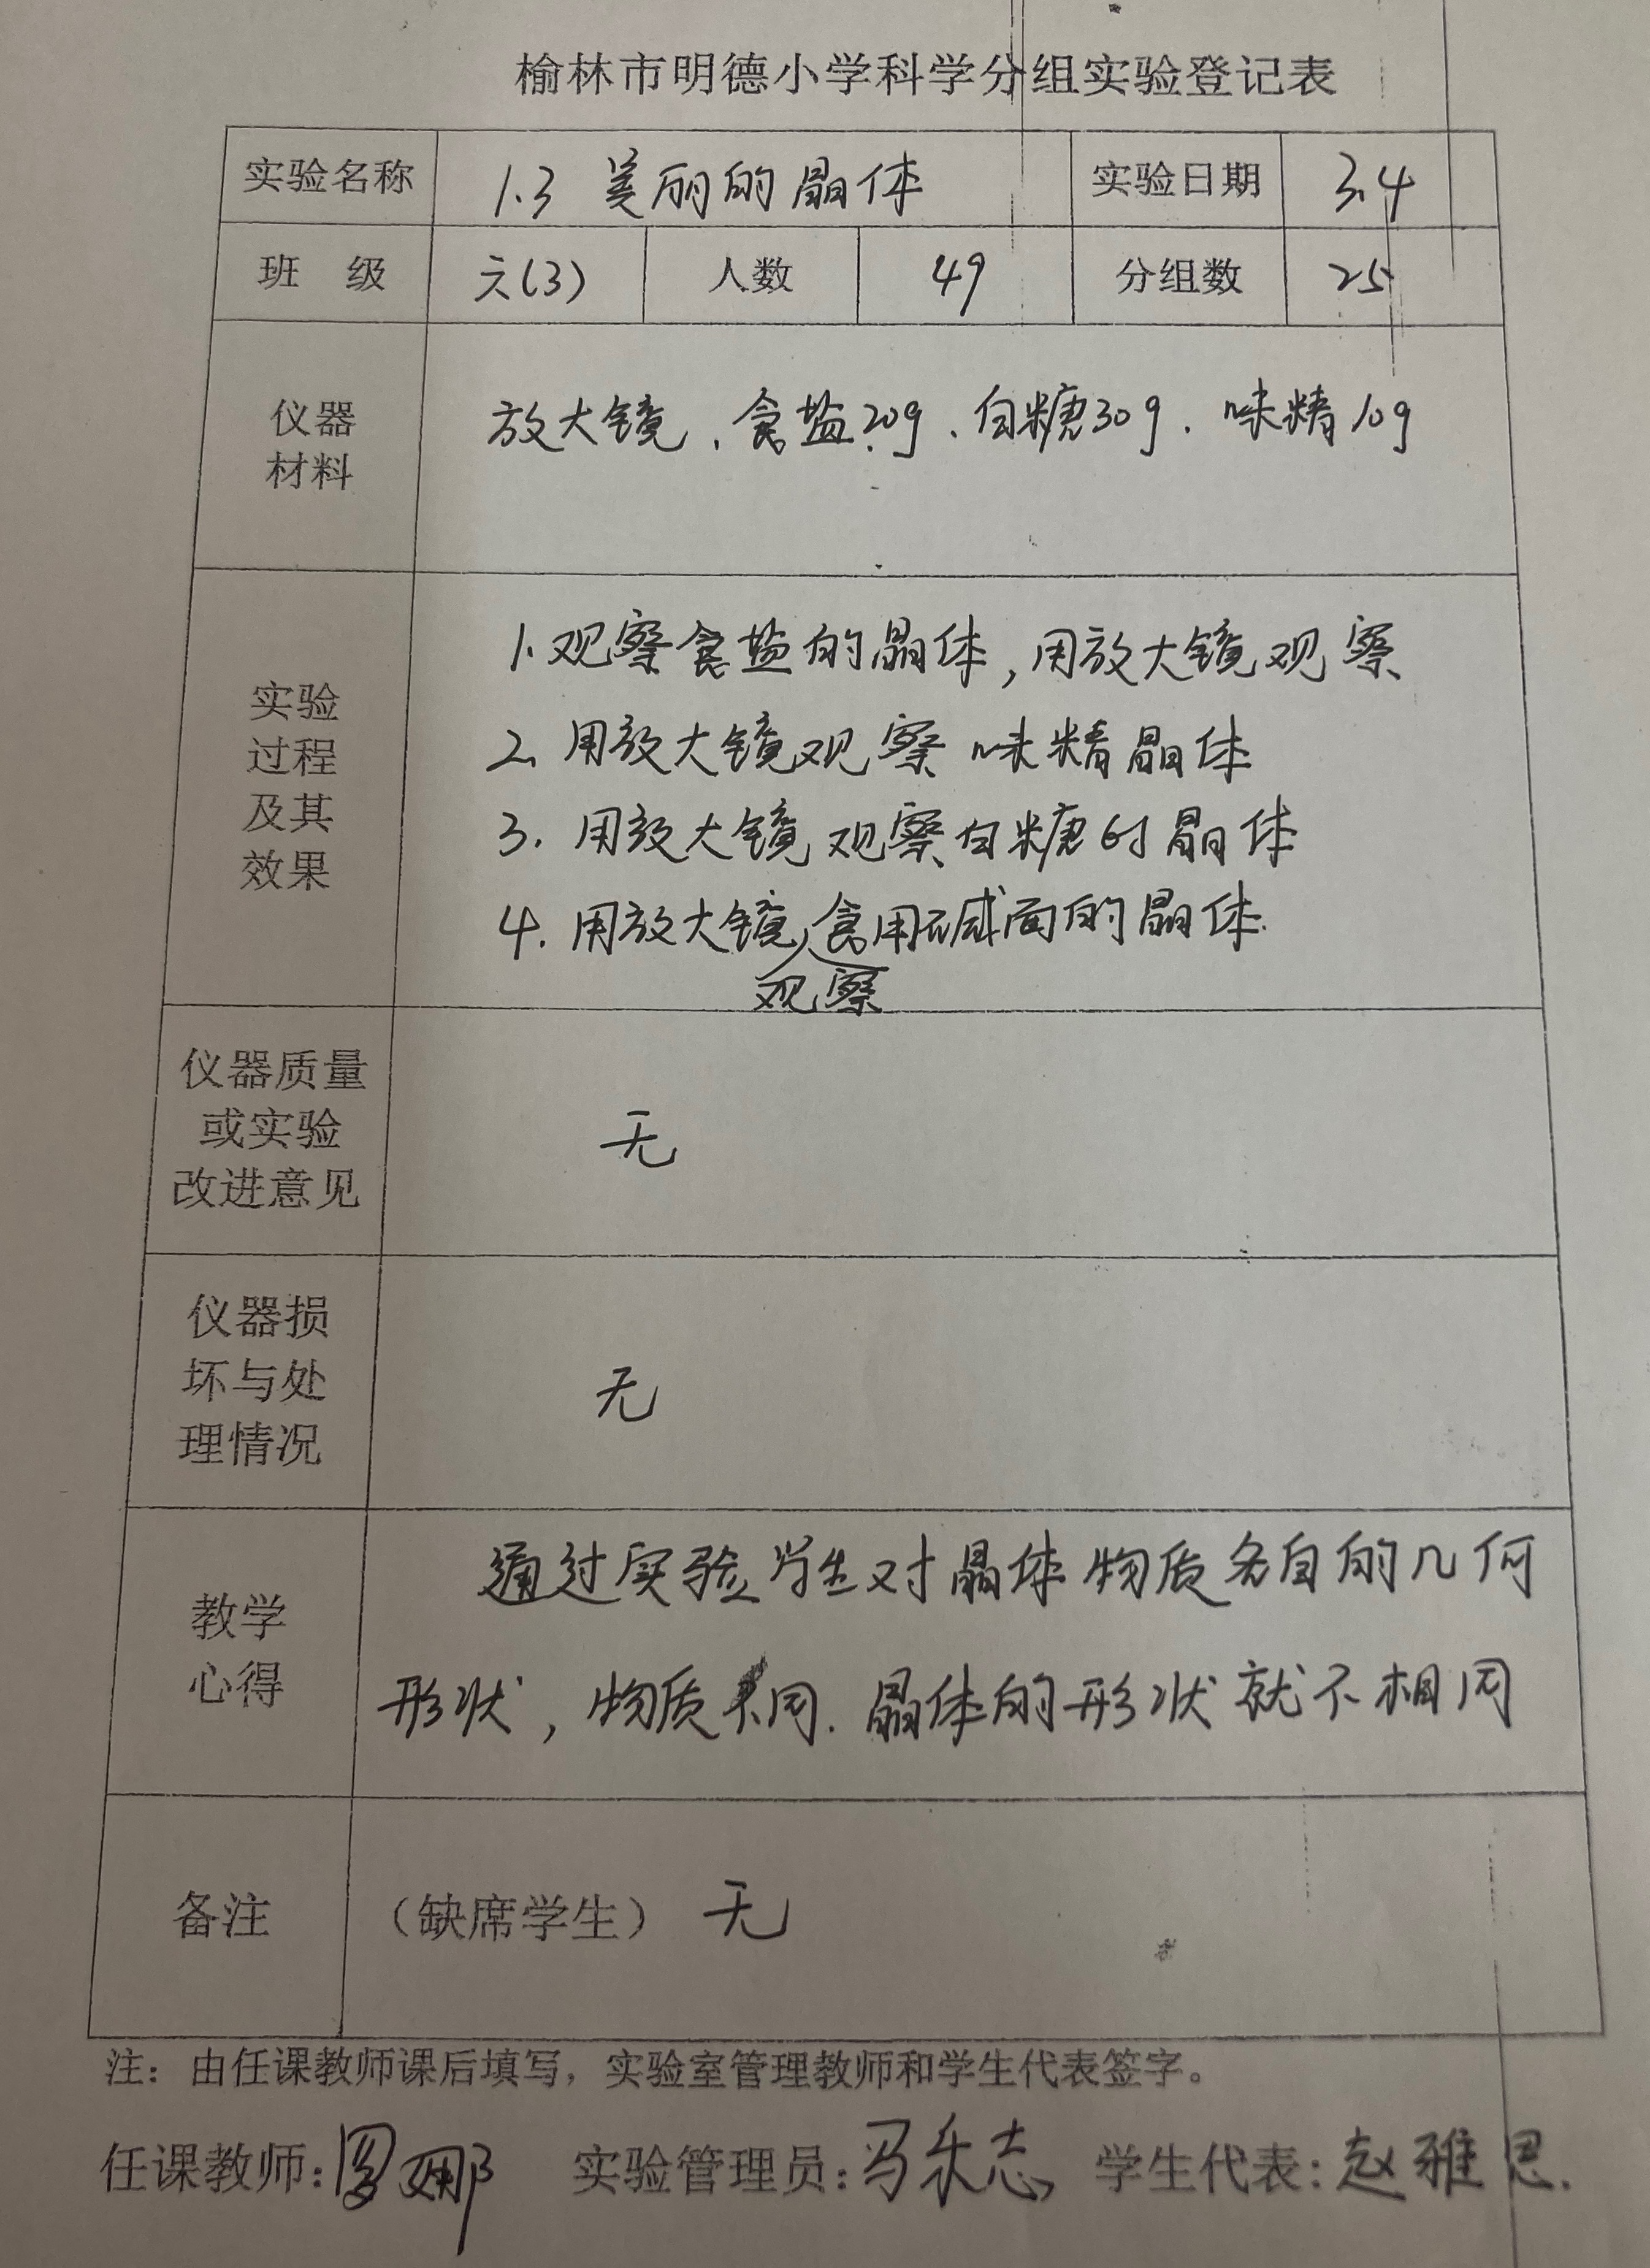 榆林市明德小学科学分组实验登记表
实验名称 1.3 美丽的晶体 实验日期 3.4
班 级 六(3) 人数 49 分组数 25
仪器
材料
放大镜、食盐20g、白糖30g、味精10g
实验
过程
及其
效果
1.观察食盐的晶体,用放大镜观察
2、用放大镜观察味精晶体
3.用放大镜观察白糖的晶体
4.用放大镜观察食用碱面的晶体.
仪器质量
或实验
改进意见
无
仪器损
坏与处
理情况
无
教学
心得
通过实验学生对晶体物质各自的几何
形状,物质不同.晶体的形状就不相同
备注 (缺席学生) 无
注:由任课教师课后填写,实验室管理教师和学生代表签字。
任课教师: 娜 实验管理员:冯 志 学生代表:赵雅思.